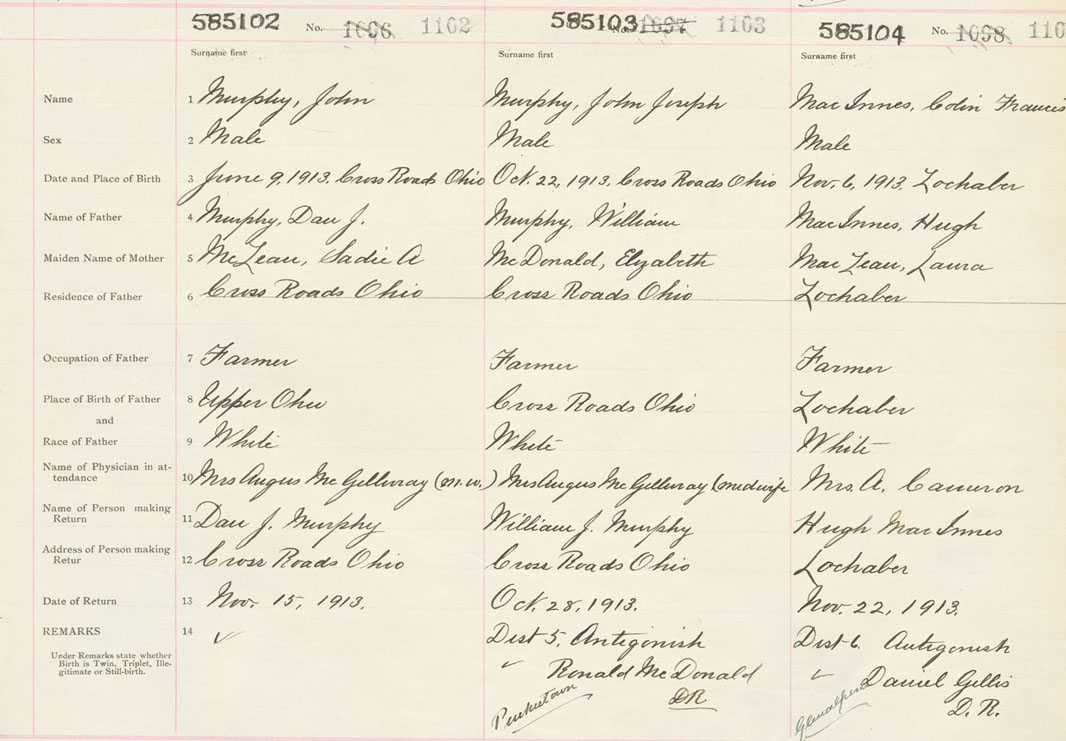 585102 No. 1096 1102 585103 No. 1097 1103 585104 No. 1098 110
Surname first Surname first Surname first
Name 1 Murphy, John Murphy, John Joseph Mac Innes, Colin Francis
Sex 2 Male Male Male
Date and Place of Birth 3 June 9, 1913. Cross Roads Ohio Oct. 22, 1913, Cross Roads Ohio Nov. 6, 1913. Lochaber
Name of Father 4 Murphy, Dan J. Murphy, William MacInnes, Hugh
Maiden Name of Mother 5 McLean, Sadie A McDonald, Elizabeth MacLean, Laura
Residence of Father 6 Cross Roads Ohio Cross Roads Ohio Lochaber
Occupation of Father 7 Farmer Farmer Farmer
Place of Birth of Father 8 Upper Ohio Cross Roads Ohio Lochaber
and
Race of Father 9 White White White
Name of Physician in at-
tendance 10 Mrs Angus McGillivray (m.w.) Mrs Angus McGillivray (midwife Mrs. A. Cameron
Name of Person making
Return 11 Dan J. Murphy William J. Murphy Hugh MacInnes
Address of Person making
Retur 12 Cross Roads Ohio Cross Roads Ohio Lochaber
Date of Return 13 Nov. 15, 1913. Oct. 28, 1913. Nov. 22, 1913.
REMARKS 14 Dist 5, Antigonish Dist 6. Antigonish
Under Remarks state whether
Birth is Twin, Triplet, Ille-
gitimate or Still-birth.
Ronald McDonald Daniel Gillis
DR D. R.